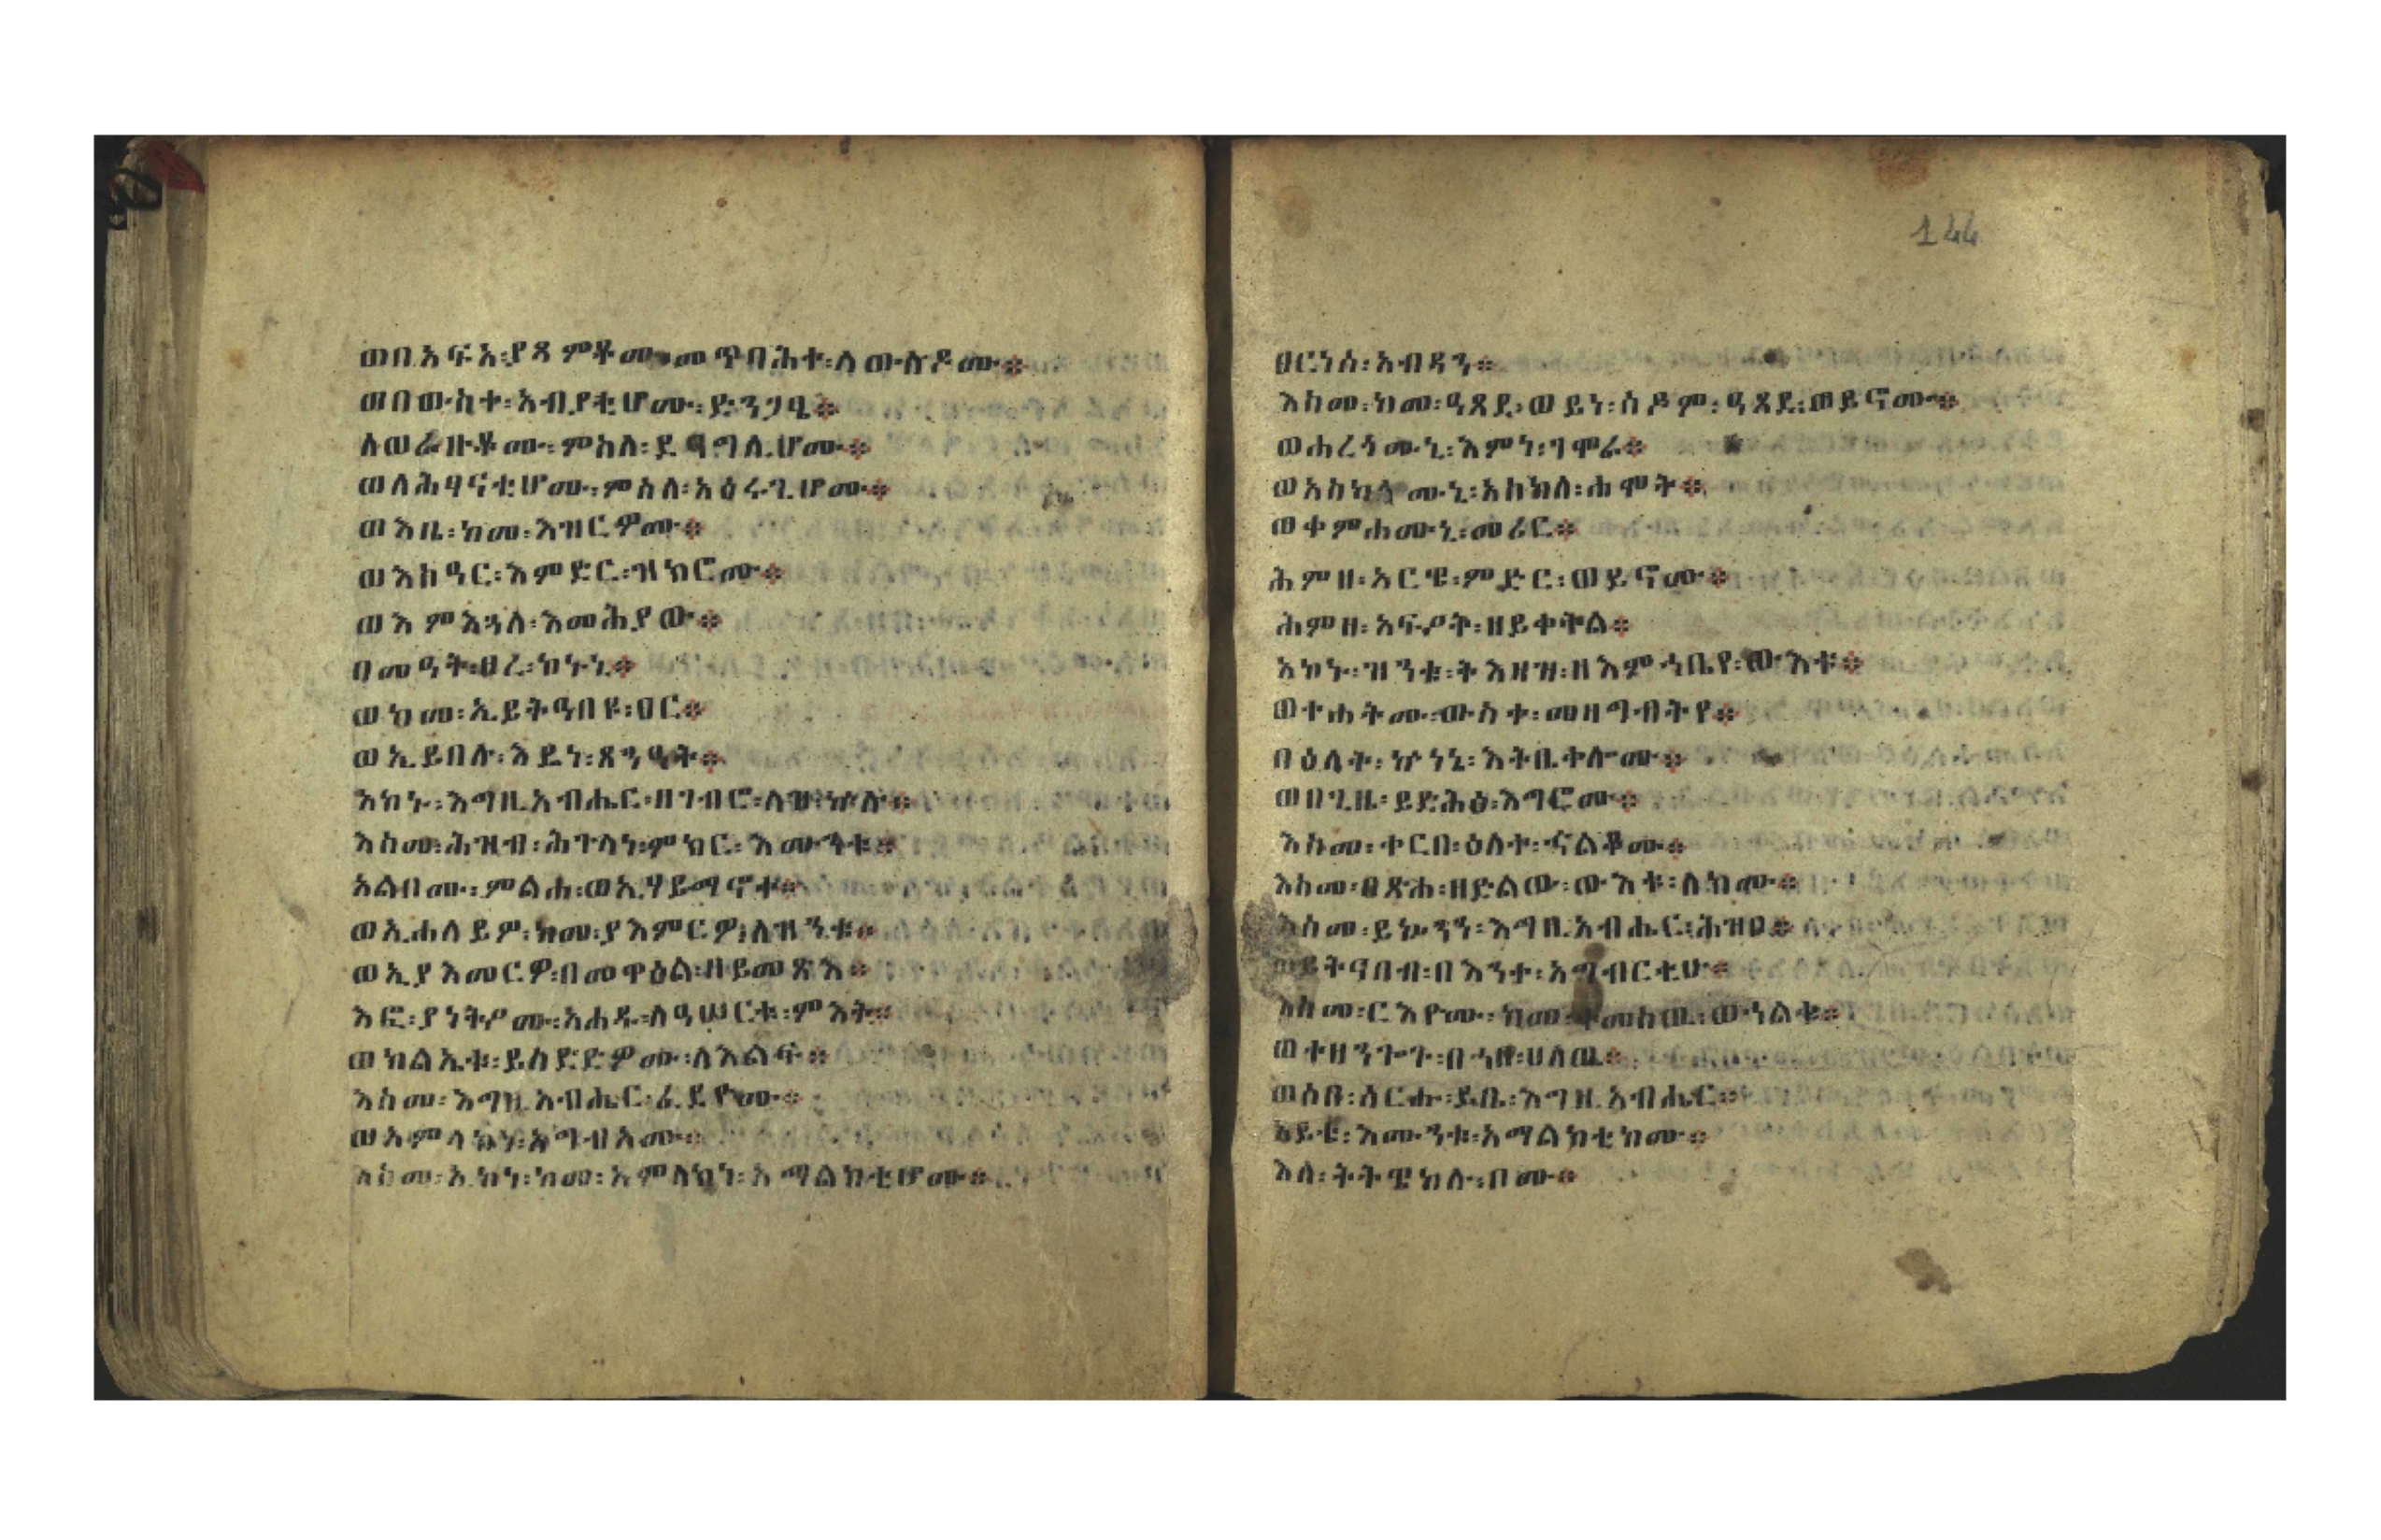 ወበአፍአ፡ያጻምቶሙ፡መጥባሕተ፡ለውሉዶሙ።
ወበውስተ፡አብያቲሆሙ፡ድንጋፄ።
ለወራዙቶሙ፡ምስለ፡ደናግሊሆሙ።
ወለሕፃናቲሆሙ፡ምስለ፡አዕሩጊሆሙ።
ወእቤ፡ከመ፡እዝርዎሙ።
ወእስዓር፡እምድር፡ዝክሮሙ።
ወእምእጓለ፡እመሕያው።
በመዓት፡ፀረ፡ኮኑኒ።
ወከመ፡ኢይትዓበዩ፡ፀር።
ወኢይበሉ፡እዴነ፡ጸንዓት።
አኮኑ፡እግዚአብሔር፡ዘገብሮ፡ለዝ፡ኵሉ።
እስመ፡ሕዝብ፡ሕጉላነ፡ምክር፡እሙንቱ።
አልቦሙ፡ምልሐ፡ወኢሃይማኖተ።
ወኢሐለይዎ፡ከመ፡ያእምርዎ፡ለዝንቱ።
ወኢያእመርዎ፡በመዋዕል፡ዘይመጽእ።
እፎ፡ያነትዖሙ፡አሐዱ፡ለዓሠርቱ፡ምእት።
ወክልኤቱ፡ይሰድድዎሙ፡ለእልፍ።
እስመ፡እግዚአብሔር፡ፈደዮሙ።
ወአምላክነ፡አግብኦሙ።
እስመ፡ኢኮነ፡ከመ፡አምላክነ፡አማልክቲሆሙ።
ፀርነሰ፡አብዳን።
እስመ፡ከመ፡ዓጸደ፡ወይነ፡ሰዶም፡ዓጸደ፡ወይኖሙ።
ወሐረጎሙኒ፡እምነ፡ገሞራ።
ወአስካሎሙኒ፡አስካለ፡ሐሞት።
ወቀምሖሙኒ፡መሪር።
ሕምዘ፡አርዌ፡ምድር፡ወይኖሙ።
ሕምዘ፡አፍዖት፡ዘይቀትል።
አኮኑ፡ዝንቱ፡ትእዛዝ፡ዘእምኀቤየ፡ውእቱ።
ወተሐትሙ፡ውስተ፡መዛግብትየ።
በዕለት፡ኵነኔ፡እትቤቀሎሙ።
ወበጊዜ፡ይድሕፅ፡እግሮሙ።
እስመ፡ቀርበ፡ዕለተ፡ኃልቆሙ።
እስመ፡ፀጽሐ፡ዘድልው፡ውእቱ፡ለክሙ።
እስመ፡ይኴንን፡እግዚአብሔር፡ሕዝቦ።
ወይትዓበብ፡በእንተ፡አግብርቲሁ።
እስመ፡ርእዮሙ፡ከመ፡ተመስዉ፡ወኀልቁ።
ወተዘንጐጉ፡በኀበ፡ሀለዉ።
ወሰቡ፡ሰርሑ፡ይቤ፡እግዚአብሔር።
አይቴ፡እሙንቱ፡አማልክቲክሙ።
እለ፡ትትዌከሉ፡ቦሙ።
144